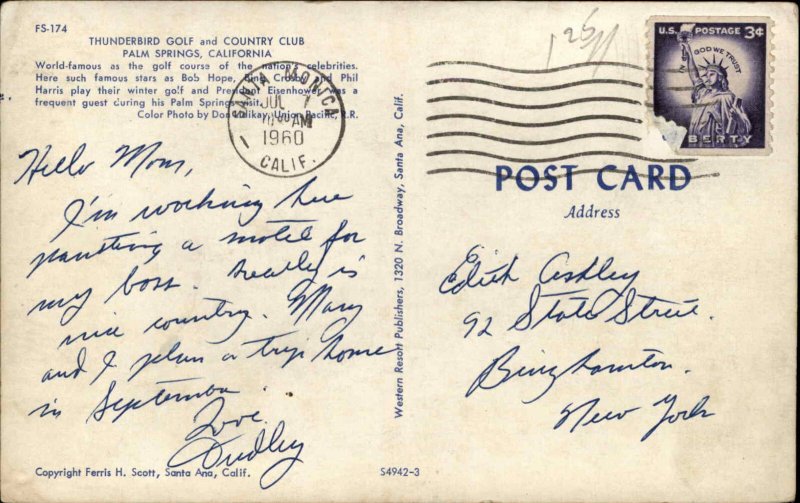 FS-174
THUNDERBIRD GOLF and COUNTRY CLUB
PALM SPRINGS, CALIFORNIA
World-famous as the golf course of the nation's celebrities.
Here such famous stars as Bob Hope, Bing Crosby and Phil
Harris play their winter golf and President Eisenhower was a
frequent guest during his Palm Springs visit.
Color Photo by Don Malikay, Union Pacific, R.R.
SANTA MONICA
JUL 7
AM
1960
CALIF.
Hello Mom,
I'm working here
painting a motel for
my boss. Really is
nice country. Mary
and I plan a trip home
in September.
Love
Dudley
Copyright Ferris H. Scott, Santa Ana, Calif.
Western Resort Publishers, 1320 N. Broadway, Santa Ana, Calif.
S4942-3
U.S. POSTAGE 3¢
IN GOD WE TRUST
LIBERTY
POST CARD
Address
Edith Ashley
92 State Street.
Binghamton.
New York